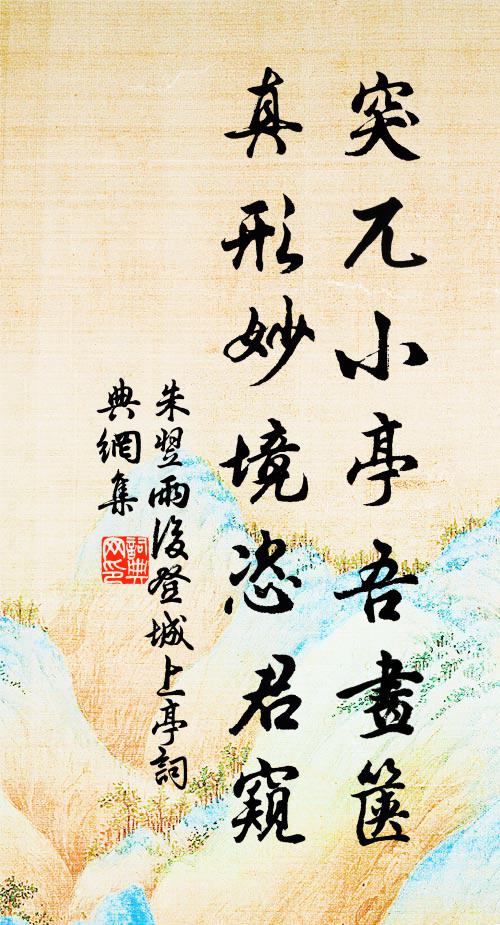 突兀小亭吾畫篋
真形妙境恣君窺
朱翌雨後登城上亭詞
典網集
詞典網印